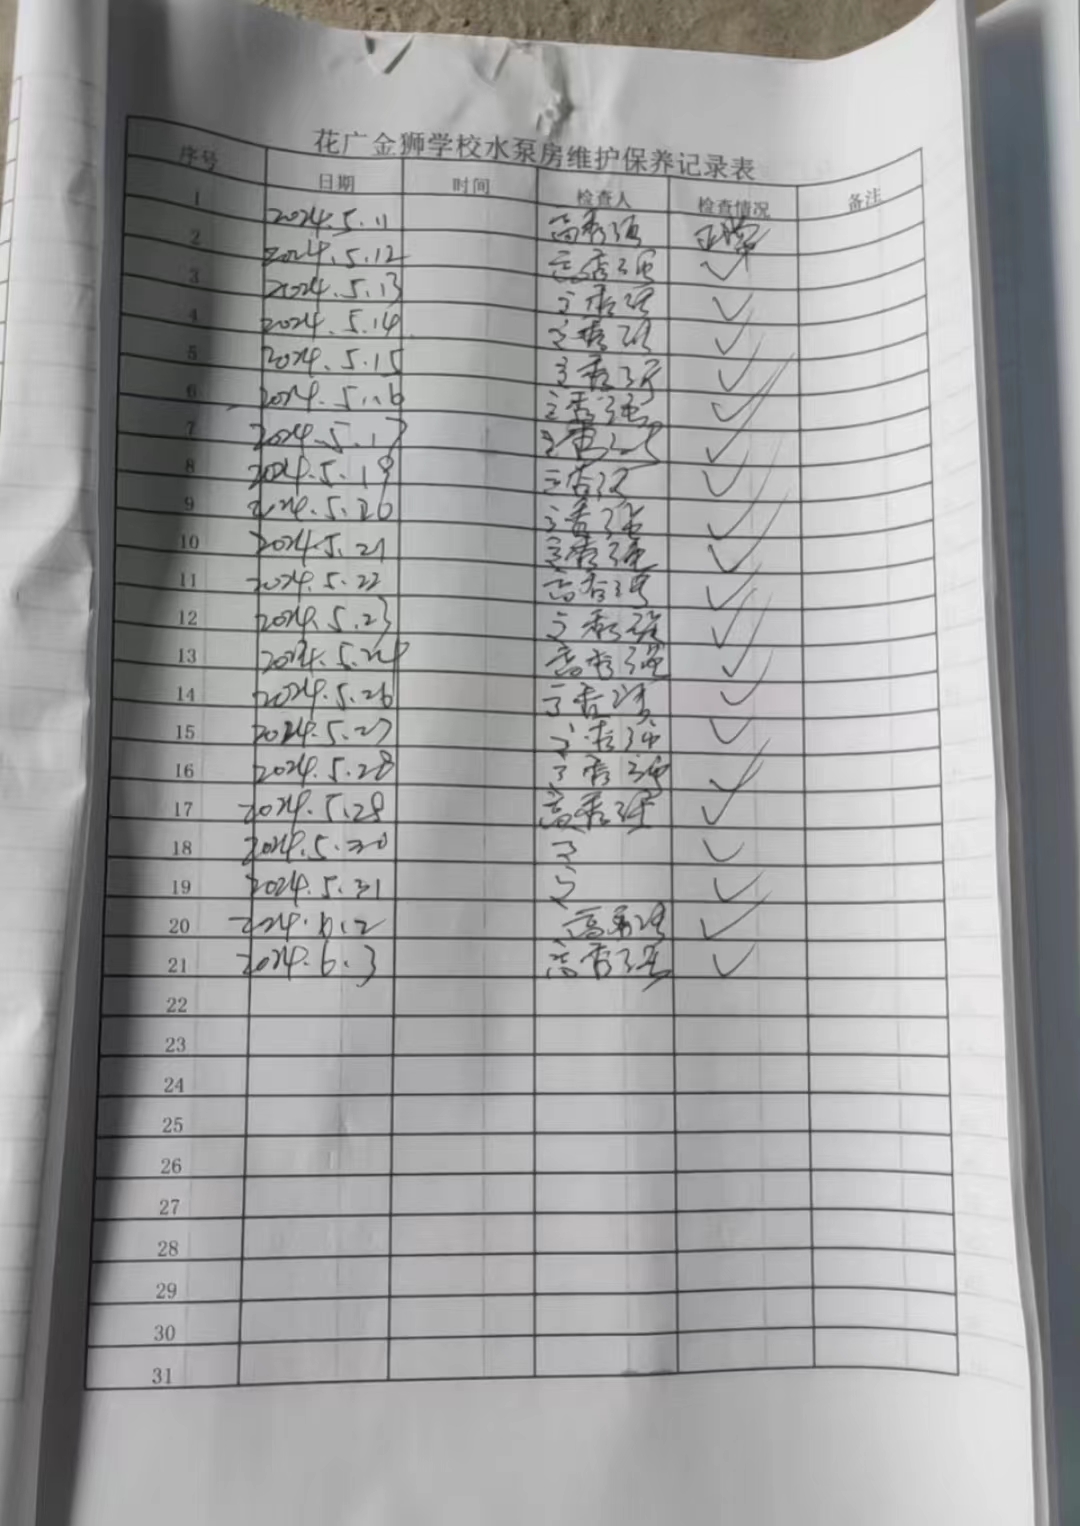 花广金狮学校水泵房维护保养记录表
序号 日期 时间 检查人 检查情况 备注
1 2024.5.11 高秀强 正常
2 2024.5.12 高秀强 ✓
3 2024.5.13 高秀强 ✓
4 2024.5.14 高秀强 ✓
5 2024.5.15 高秀强 ✓
6 2024.5.16 高秀强 ✓
7 2024.5.17 高秀强 ✓
8 2024.5.19 高秀强 ✓
9 2024.5.20 高秀强 ✓
10 2024.5.21 高秀强 ✓
11 2024.5.22 高秀强 ✓
12 2024.5.23 高秀强 ✓
13 2024.5.24 高秀强 ✓
14 2024.5.26 高秀强 ✓
15 2024.5.27 高秀强 ✓
16 2024.5.28 高秀强 ✓
17 2024.5.28 高秀强 ✓
18 2024.5.30 ✓
19 2024.5.31 ✓
20 2024.6.2 高秀强 ✓
21 2024.6.3 高秀强 ✓
22
23
24
25
26
27
28
29
30
31